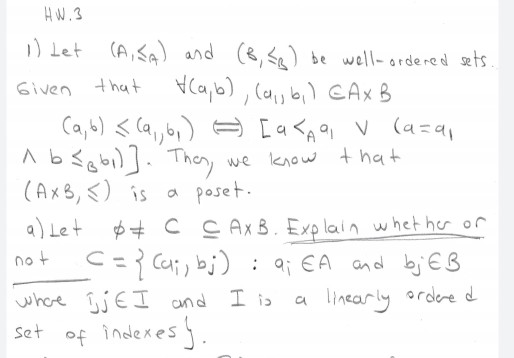 HW.3
1) Let (A,≤_A) and (B,≤_B) be well-ordered sets.
Given that ∀(a,b), (a₁,b₁) ∈ A×B
(a,b) ≤ (a₁,b₁) ⟺ [a <_A a₁ ∨ (a=a₁
∧ b ≤_B b₁)]. Then, we know that
(A×B, ≤) is a poset.
a) Let ∅ ≠ C ⊆ A×B. Explain whether or
not C = {(aᵢ, bⱼ) : aᵢ ∈ A and bⱼ ∈ B
where i,j ∈ I and I is a linearly ordered
set of indexes}.